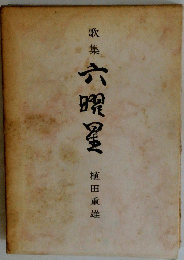 歌集
六曜星
植田重雄